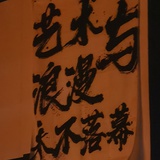 艺术与
浪漫
永不落幕